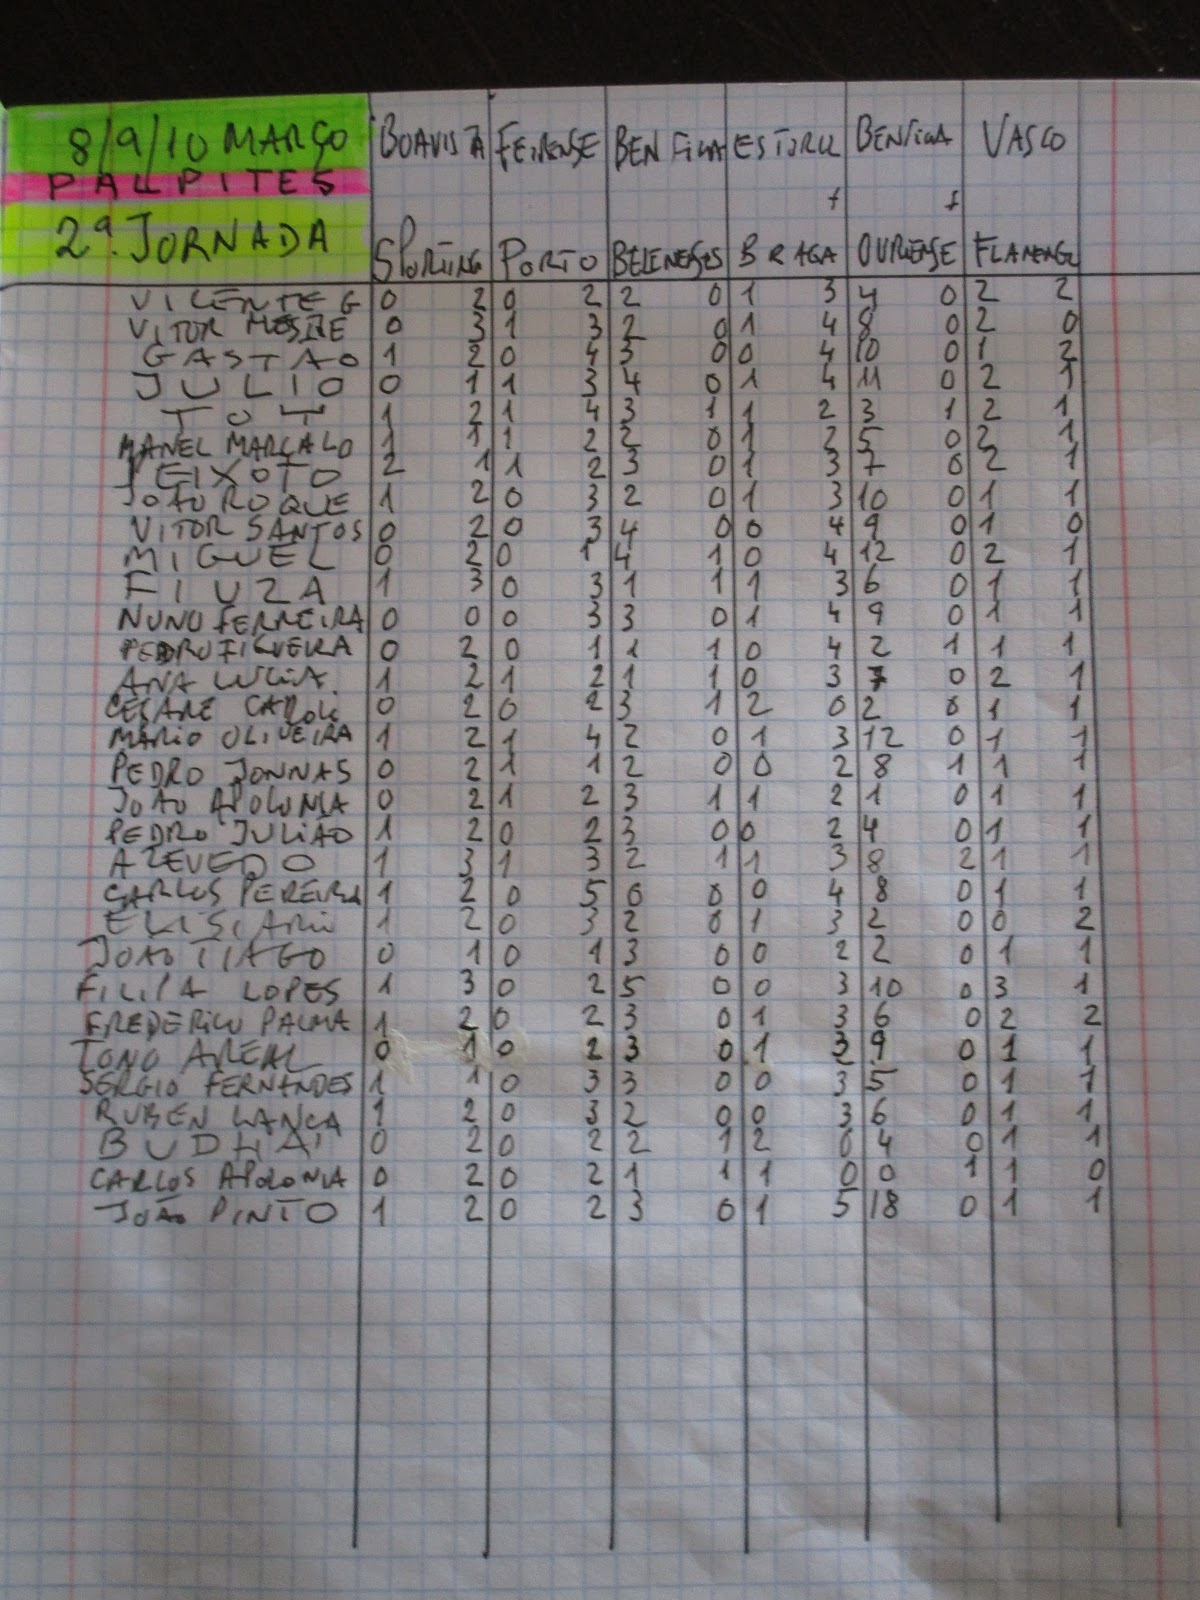 8/9/10 MARÇO BOAVISTA FEIRENSE BENFICA ESTORIL BENFICA VASCO
PALPITES f f
2ª. JORNADA SPORTING PORTO BELENENSES BRAGA OURIENSE FLAMENGO
VICENTE G 0 2 0 2 2 0 1 3 4 0 2 2
VITOR MESTRE 0 3 1 3 2 0 1 4 8 0 2 0
GASTAO 1 2 0 4 3 0 0 4 10 0 1 2
JULIO 0 1 1 3 4 0 1 4 11 0 2 1
TOT 1 2 1 4 3 1 1 2 3 1 2 1
MANEL MARÇALO 1 1 1 2 2 0 1 2 5 0 2 1
PEIXOTO 2 1 1 2 3 0 1 3 7 0 2 1
JOAO ROQUE 1 2 0 3 2 0 1 3 10 0 1 1
VITOR SANTOS 0 2 0 3 4 0 0 4 9 0 1 0
MIGUEL 0 2 0 1 4 1 0 4 12 0 2 1
FIUZA 1 3 0 3 1 1 1 3 6 0 1 1
NUNO FERREIRA 0 0 0 3 3 0 1 4 9 0 1 1
PEDRO FIGUEIRA 0 2 0 1 1 1 0 4 2 1 1 1
ANA LUCIA. 1 2 1 2 1 1 0 3 7 0 2 1
CESARE CAROLI 0 2 0 2 3 1 2 0 2 0 1 1
MARIO OLIVEIRA 1 2 1 4 2 0 1 3 12 0 1 1
PEDRO JONNAS 0 2 1 1 2 0 0 2 8 1 1 1
JOAO APOLONIA 0 2 1 2 3 1 1 2 1 0 1 1
PEDRO JULIAO 1 2 0 2 3 0 0 2 4 0 1 1
AZEVEDO 1 3 1 3 2 1 1 3 8 2 1 1
CARLOS PEREIRA 1 2 0 5 6 0 0 4 8 0 1 1
ELISIARIO 1 2 0 3 2 0 1 3 2 0 0 2
JOAO TIAGO 0 1 0 1 3 0 0 2 2 0 1 1
FILIPA LOPES 1 3 0 2 5 0 0 3 10 0 3 1
FREDERICO PALMA 1 2 0 2 3 0 1 3 6 0 2 2
TONO AREAL 0 1 0 2 3 0 1 2 9 0 1 1
SERGIO FERNANDES 1 1 0 3 3 0 0 3 5 0 1 1
RUBEN LANÇA 1 2 0 3 2 0 0 3 6 0 1 1
BUDHA 0 2 0 2 2 1 2 0 4 0 1 1
CARLOS APOLONIA 0 2 0 2 1 1 1 0 0 1 1 0
JOÃO PINTO 1 2 0 2 3 0 1 5 18 0 1 1